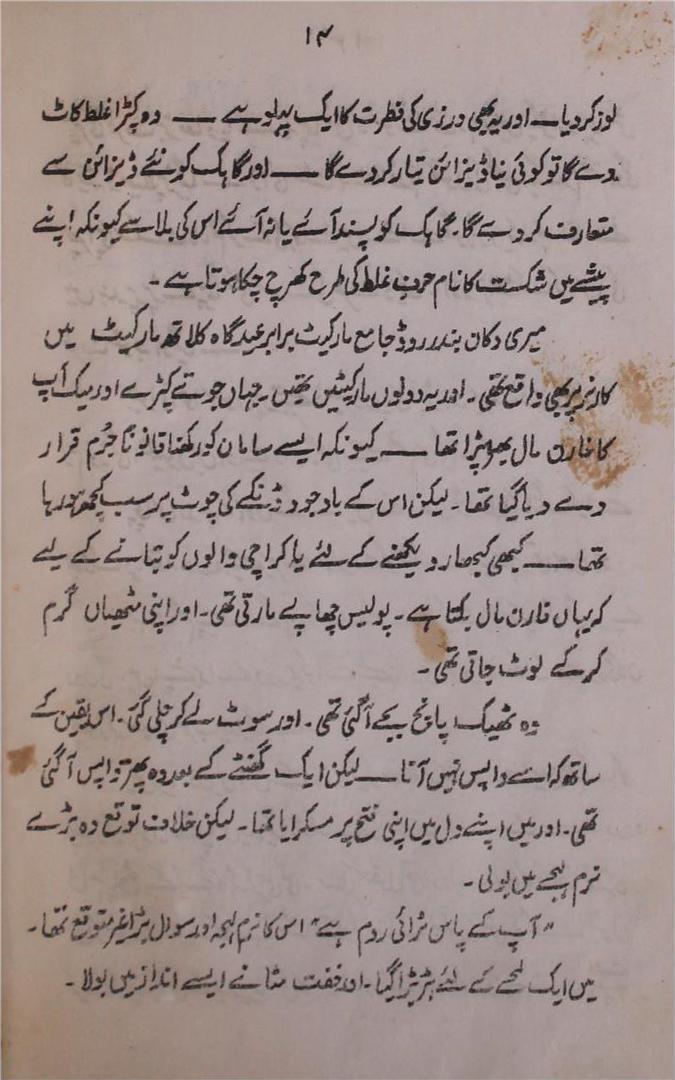 ۱۴
لوز کر دیا ــ اور یہ بھی درزی کی فطرت کا ایک پہلو ہے ــ وہ کپڑا غلط کاٹ
دے گا تو کوئی نیا ڈیزائن تیار کر دے گا ــ اور گاہک کو نئے ڈیزائن سے
متعارف کر دے گا۔ گاہک کو پسند آئے یا نہ آئے اس کی بلا سے کیونکہ اپنے
پیشے میں شکست کا نام حرفِ غلط کی طرح کھرچ چکا ہوتا ہے۔
میری دکان بندر روڈ جامع مارکیٹ برابر عید گاہ کلاتھ مارکیٹ میں
کارنر پر ہی واقع تھی۔ اور یہ دونوں مارکیٹیں تھیں۔ جہاں جوتے کپڑے اور میک اَپ
کا فارن مال بھرا پڑا تھا ــ کیونکہ ایسے سامان کو رکھنا قانوناً جُرم قرار
دے دیا گیا تھا۔ لیکن اس کے باوجود ڈنکے کی چوٹ پر سب کچھ ہو رہا
تھا ــ کبھی کبھار دیکھنے کے لئے یا کراچی والوں کو بتانے کے لیے
کہ یہاں فارن مال بکتا ہے۔ پولیس چھاپے مارتی تھی۔ اور اپنی مٹھیاں گرم
کر کے لوٹ جاتی تھی۔
وہ ٹھیک پانچ بجے آ گئی تھی۔ اور سوٹ لے کر چلی گئی۔ اس یقین کے
ساتھ کہ اسے واپس نہیں آنا ــ لیکن ایک گھنٹے کے بعد وہ پھر واپس آ گئی
تھی۔ اور میں اپنے دل میں اپنی فتح پر مسکرایا تھا۔ لیکن خلاف توقع وہ بڑے
نرم لہجے میں بولی۔
”آپ کے پاس ٹرائی روم ہے“ اس کا نرم لہجہ اور سوال بڑا غیر متوقع تھا۔
میں ایک لمحے کے لئے ہڑبڑا گیا۔ اور خفت مٹانے ایسے انداز میں بولا۔